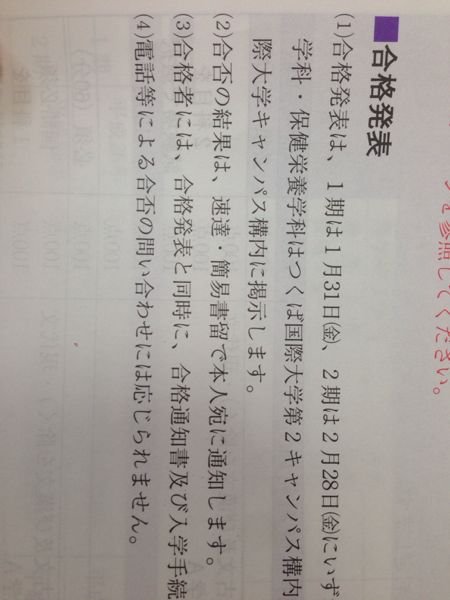 を参照してください。
■合格発表
(1)合格発表は、1期は1月31日㈮、2期は2月28日㈮にいず
学科・保健栄養学科はつくば国際大学第2キャンパス構内
際大学キャンパス構内に掲示します。
(2)合否の結果は、速達・簡易書留で本人宛に通知します。
(3)合格者には、合格発表と同時に、合格通知書及び入学手続
(4)電話等による合否の問い合わせには応じられません。